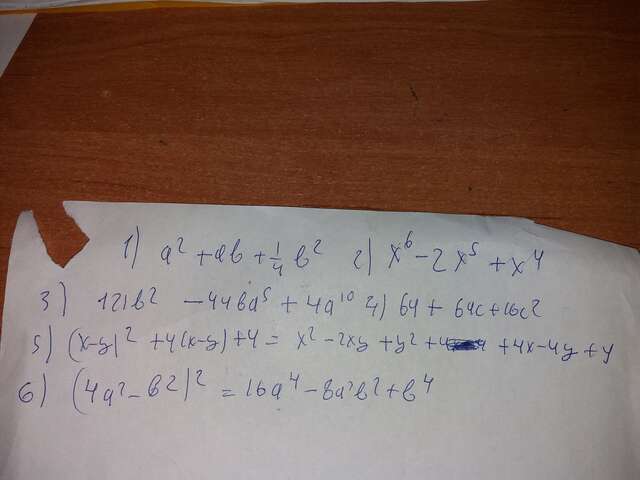 1) a² + ab + ¼ b² 2) x⁶ - 2x⁵ + x⁴
3) 121b² - 44ba⁵ + 4a¹⁰ 4) 64 + 64c + 16c²
5) (x-y)² + 4(x-y) + 4 = x² - 2xy + y² + 4x - 4y + 4
6) (4a² - b²)² = 16a⁴ - 8a²b² + b⁴